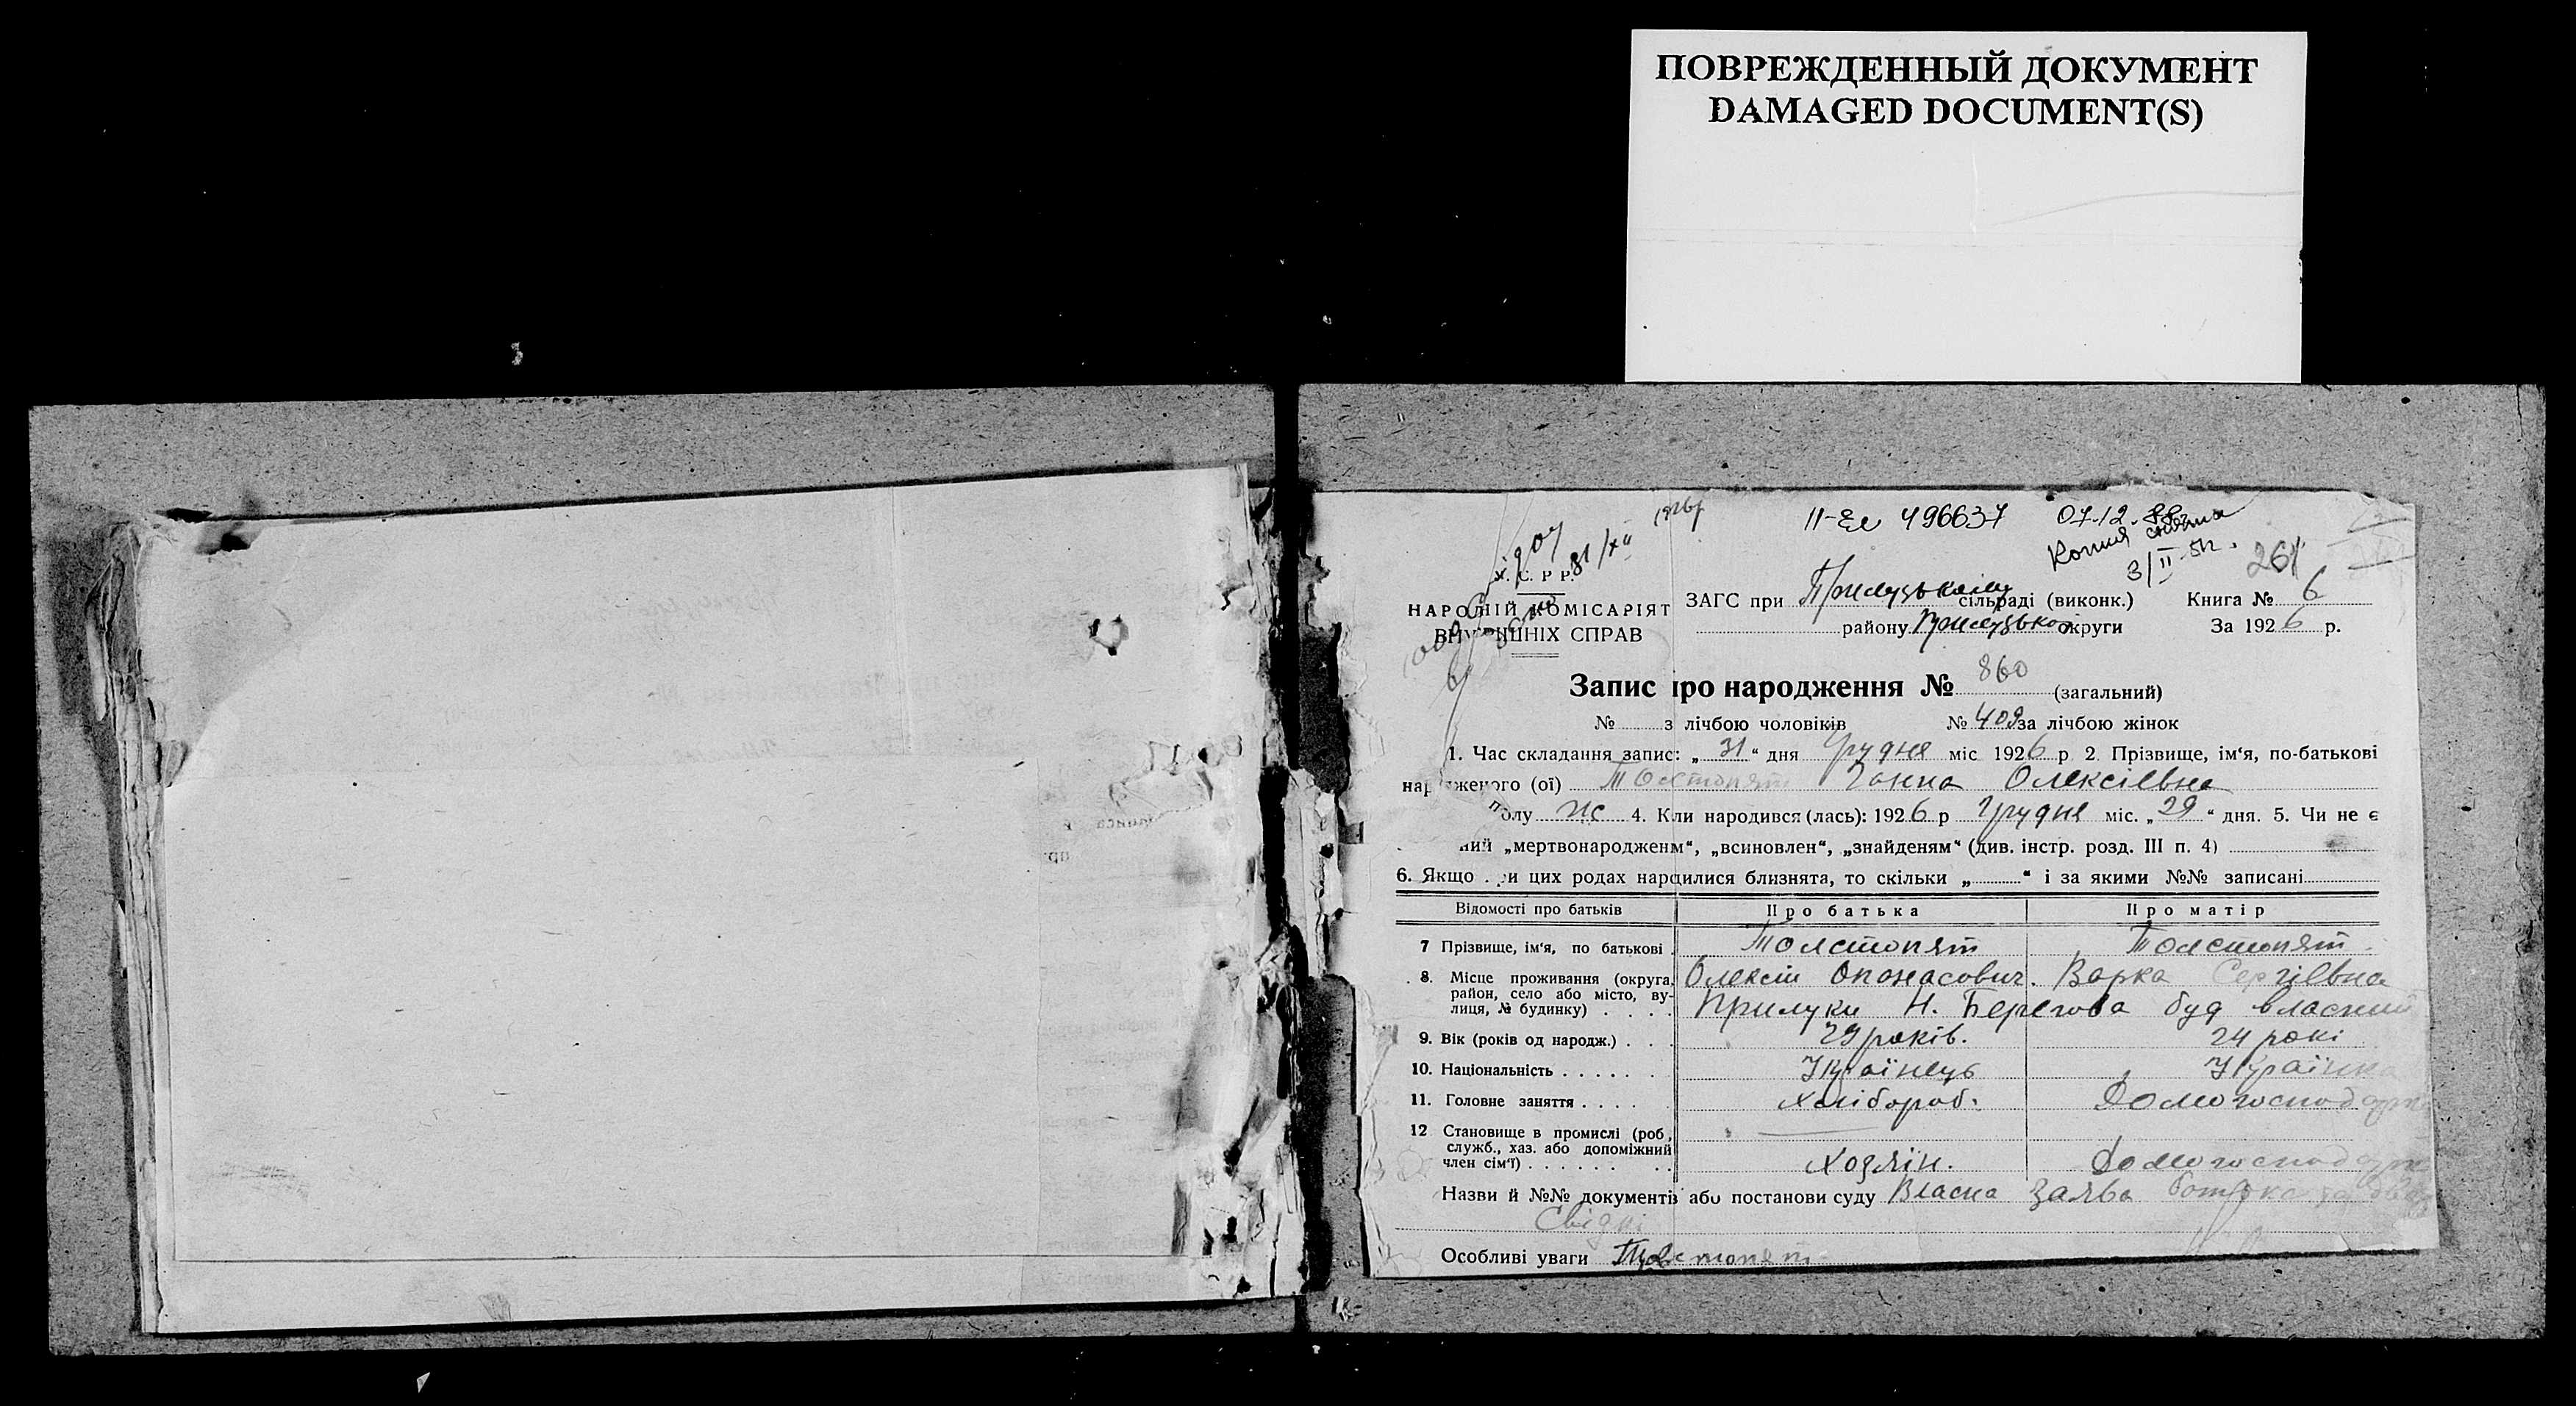 ПОВРЕЖДЕННЫЙ ДОКУМЕНТ
DAMAGED DOCUMENT(S)
1926р
II-ЕЛ 496637 07.12.
Копия снята
3/II-51г.
261
31/XII
У. С. Р Р.
НАРОДНІЙ КОМІСАРІЯТ
ВНУТРІШНІХ СПРАВ
ЗАГС при Прилуцькому сільраді (виконк.) Книга № 6
району Прилуцької округи За 1926 р.
Запис про народження № 860 (загальний)
№ з лічбою чоловіків № 409 за лічбою жінок
1. Час складання запис: „31“ дня Грудня міс 1926 р 2. Прізвище, ім‘я, по-батькові
нар дженого (ої) Толстопят Ганна Олексіевна
полу жс 4. Кли народився (лась): 1926 р Грудня міс. „29“ дня. 5. Чи не є
ний „мертвонародженм“, „всиновлен“, „знайденям“ (див. інстр. розд. III п. 4)
6. Якщо ри цих родах нардилися близнята, то скільки „ “ і за якими №№ записані
Відомості про батьків Про батька Про матір
7 Прізвище, ім‘я, по батькові Толстопят Толстопят
8. Місце проживання (округа, район, село або місто, вулиця, № будинку) Олексій Опонасович. Варка Сергіевна
Прилуки Н. Берегова буд власний
9. Вік (років од народж.) 29 років. 24 рокі
10. Національність Українець Українка
11. Головне заняття Хлібороб. Домогосподарка
12 Становище в промислі (роб, служб., хаз. або допоміжний член сім‘ї) Хозяїн. Домогосподарка
Назви й №№ документів або постанови суду Власна заява батька
Свідкі
Особливі уваги Толстопят